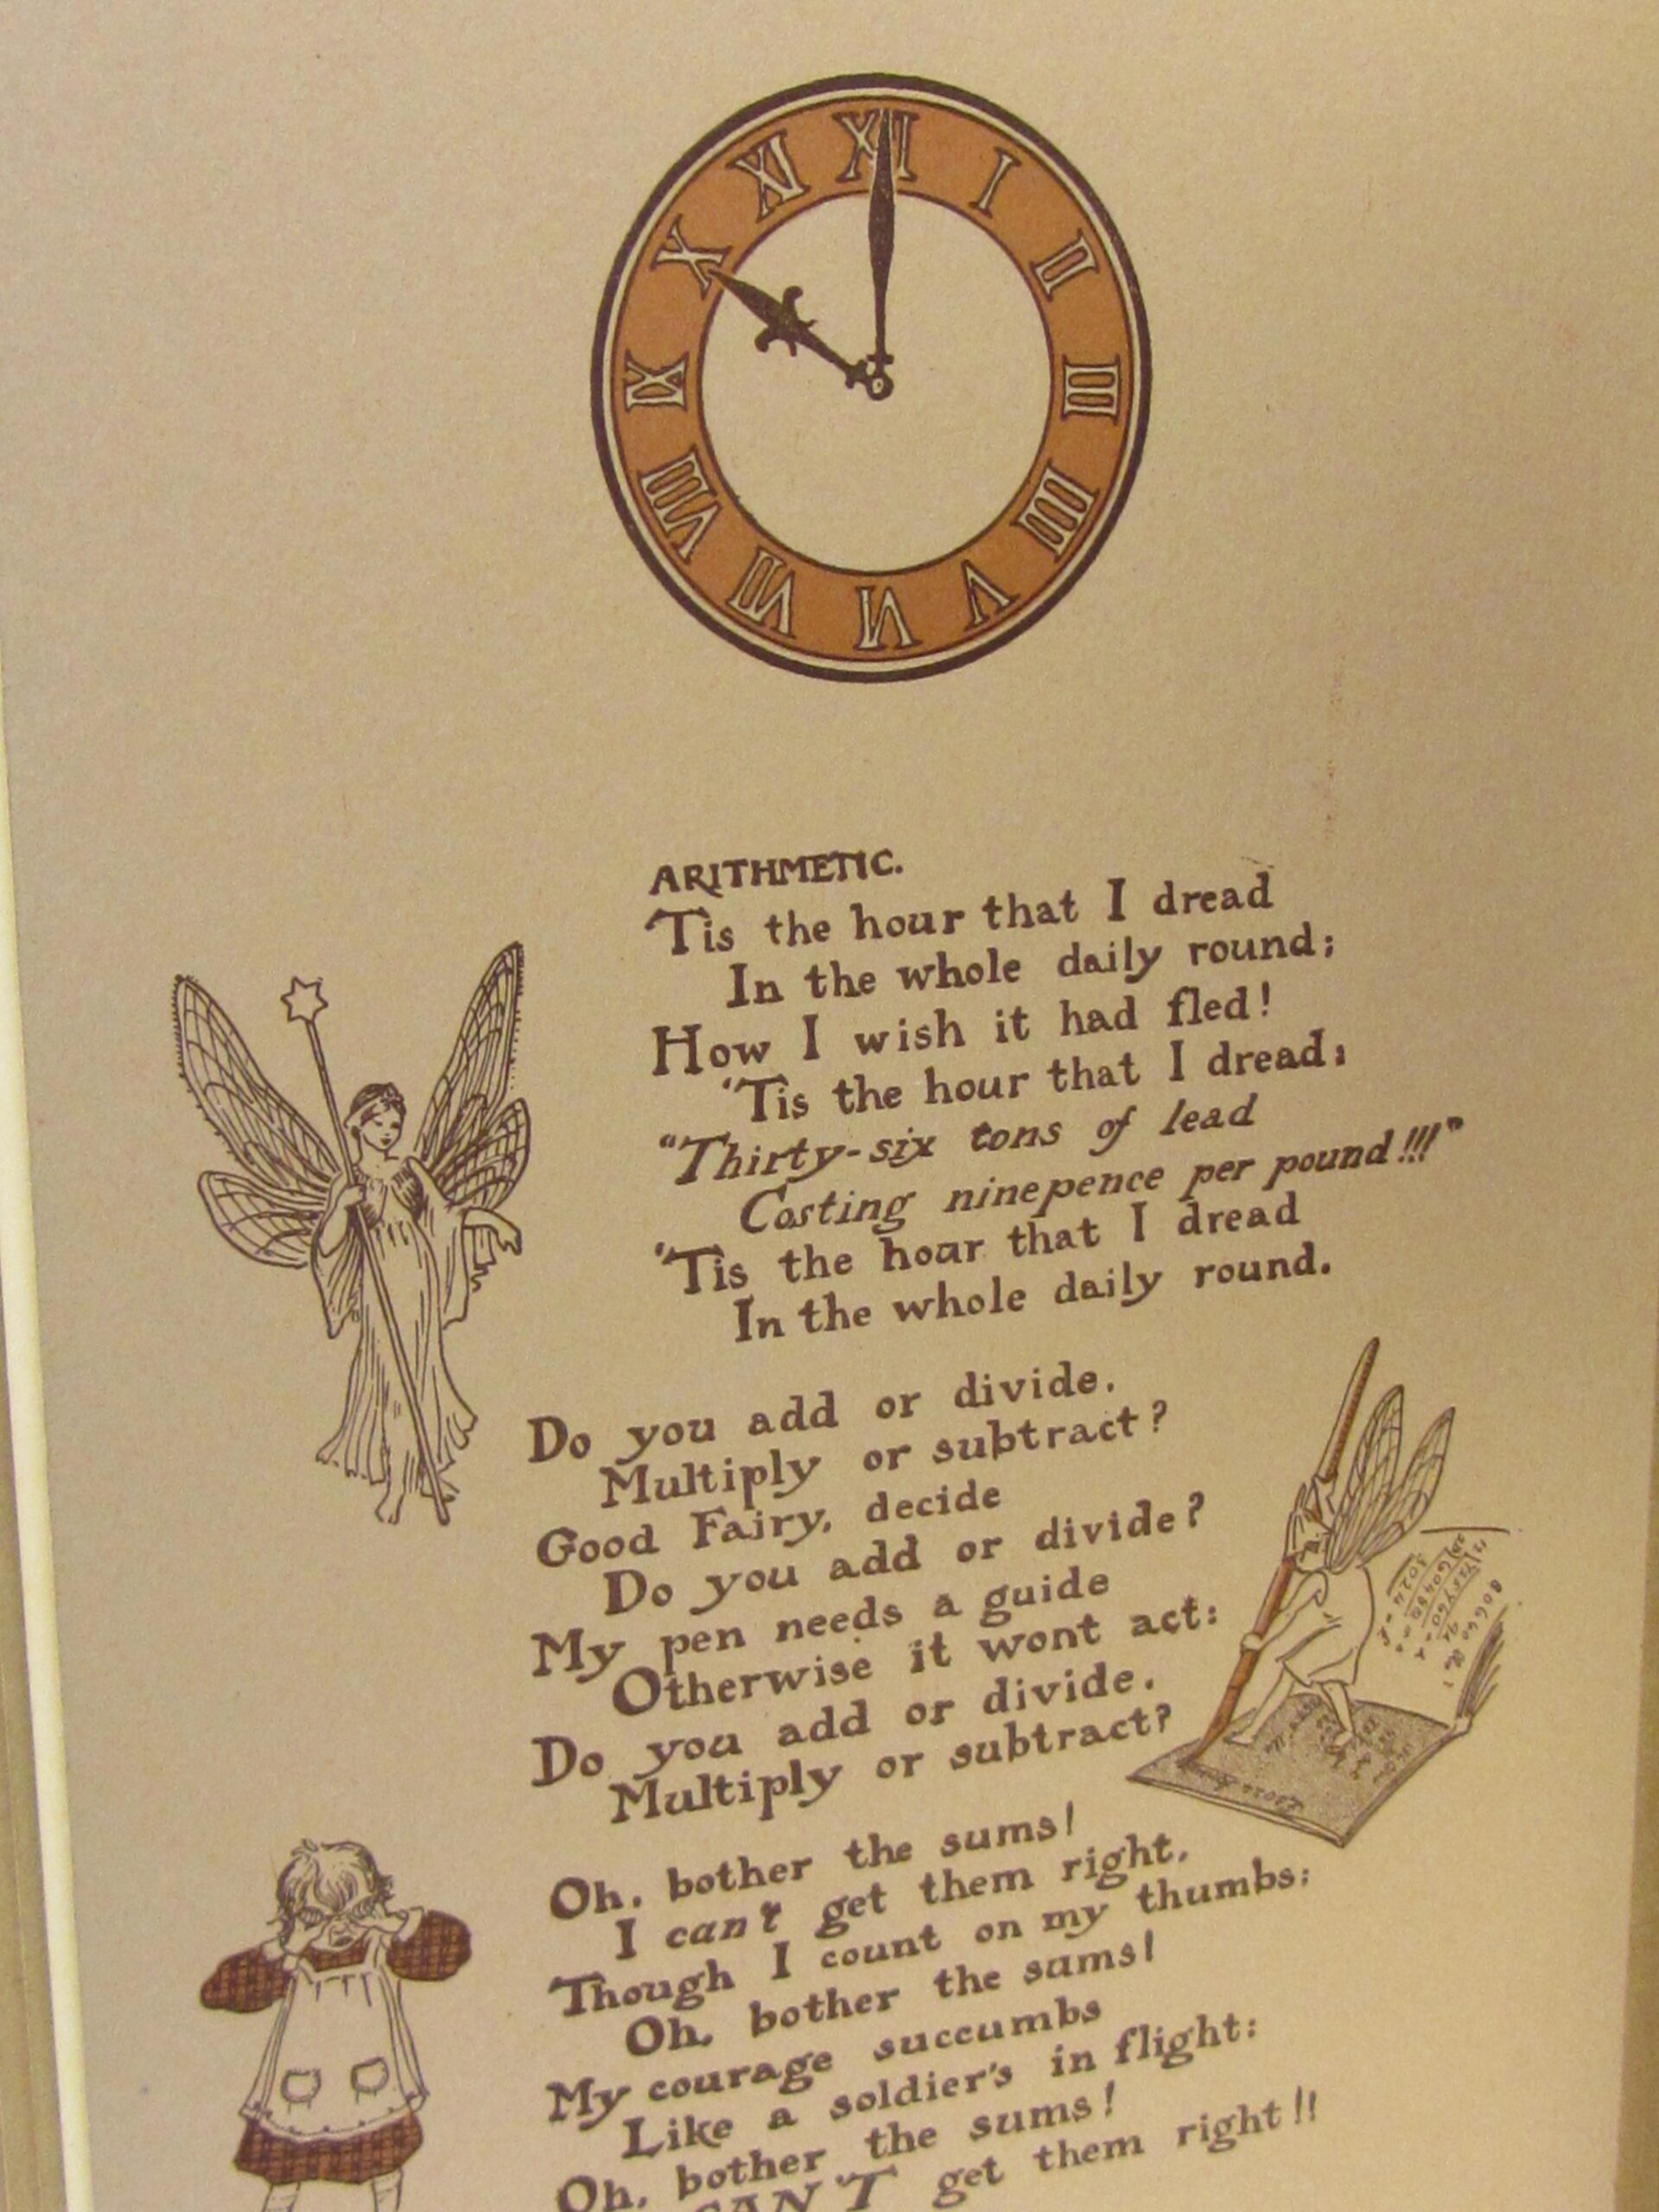 XII
I
II
III
IIII
V
VI
VII
VIII
IX
X
XI
ARITHMETIC.
'Tis the hour that I dread
In the whole daily round;
How I wish it had fled!
'Tis the hour that I dread;
"Thirty-six tons of lead
Costing ninepence per pound!!!"
'Tis the hour that I dread
In the whole daily round.
Do you add or divide,
Multiply or subtract?
Good Fairy, decide
Do you add or divide?
My pen needs a guide
Otherwise it wont act:
Do you add or divide,
Multiply or subtract?
Oh, bother the sums!
I can't get them right,
Though I count on my thumbs;
Oh, bother the sums!
My courage succumbs
Like a soldier's in flight:
Oh, bother the sums!
CAN'T get them right!!